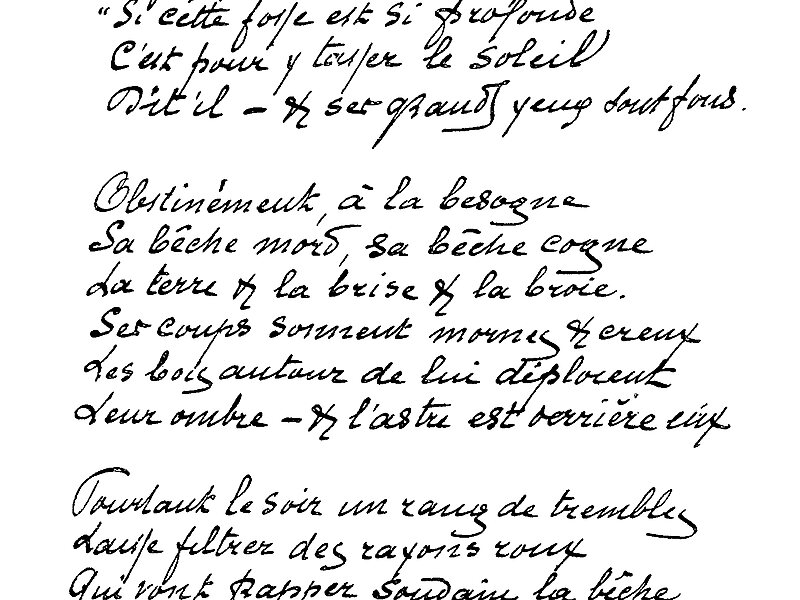 "Si cette fosse est si profonde
C'est pour y tasser le soleil
Dit'il – & ses grands yeux sont fous.
Obstinément, à la besogne
Sa bêche mord, sa bêche cogne
La terre & la brise & la broie.
Ses coups sonnent mornes & creux
Les bois autour de lui déploient
Leur ombre – & l'astre est derrière eux
Pourtant le soir un rang de trembles
Laisse filtrer des rayons roux
Qui vont frapper soudain la bêche